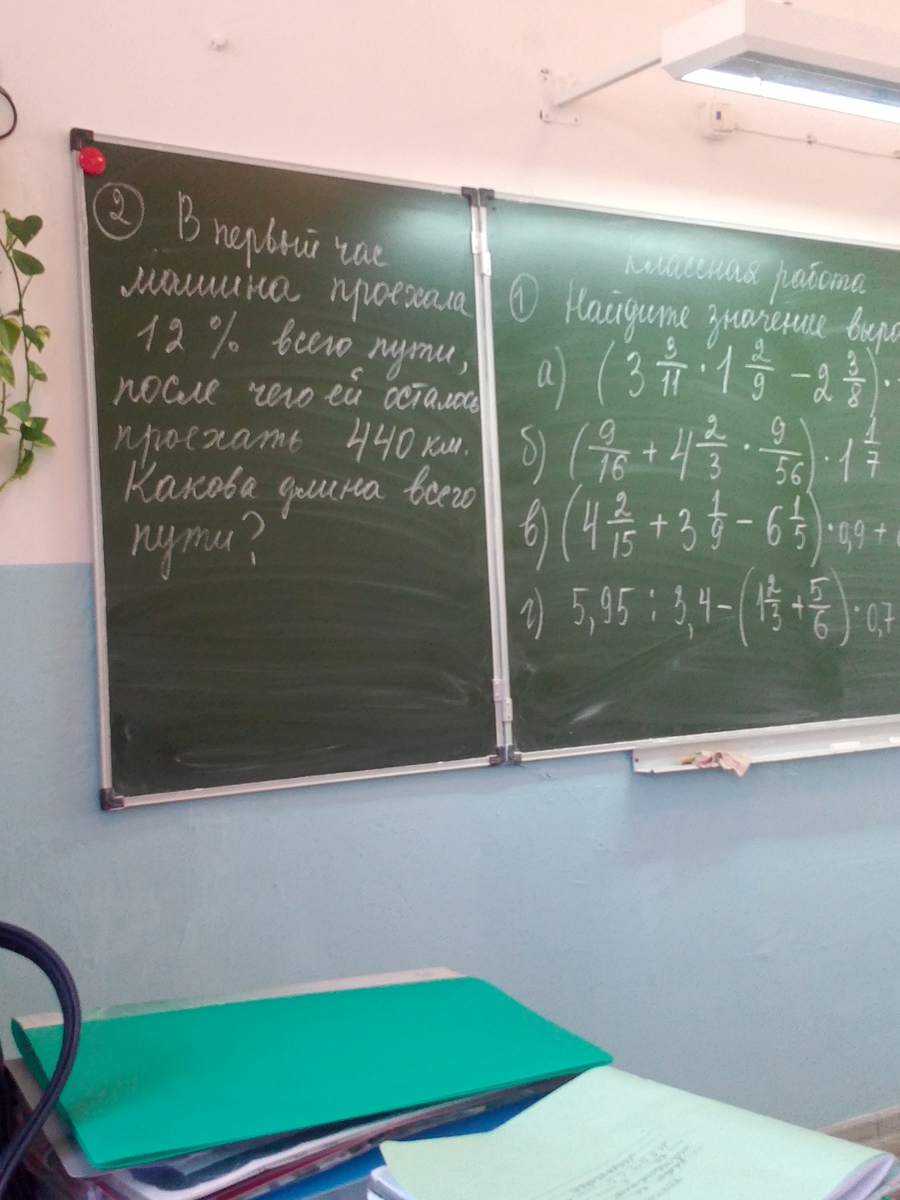 2 В первый час
машина проехала
12 % всего пути,
после чего ей осталось
проехать 440 км.
Какова длина всего
пути?
классная работа
1 Найдите значение выра
а) (3 3/11 · 1 2/9 − 2 3/8) ·
б) (9/16 + 4 2/3 · 9/56) · 1 1/7
в) (4 2/15 + 3 1/9 − 6 1/5) · 0,9 +
г) 5,95 : 3,4 − (1 2/3 + 5/6) · 0,7